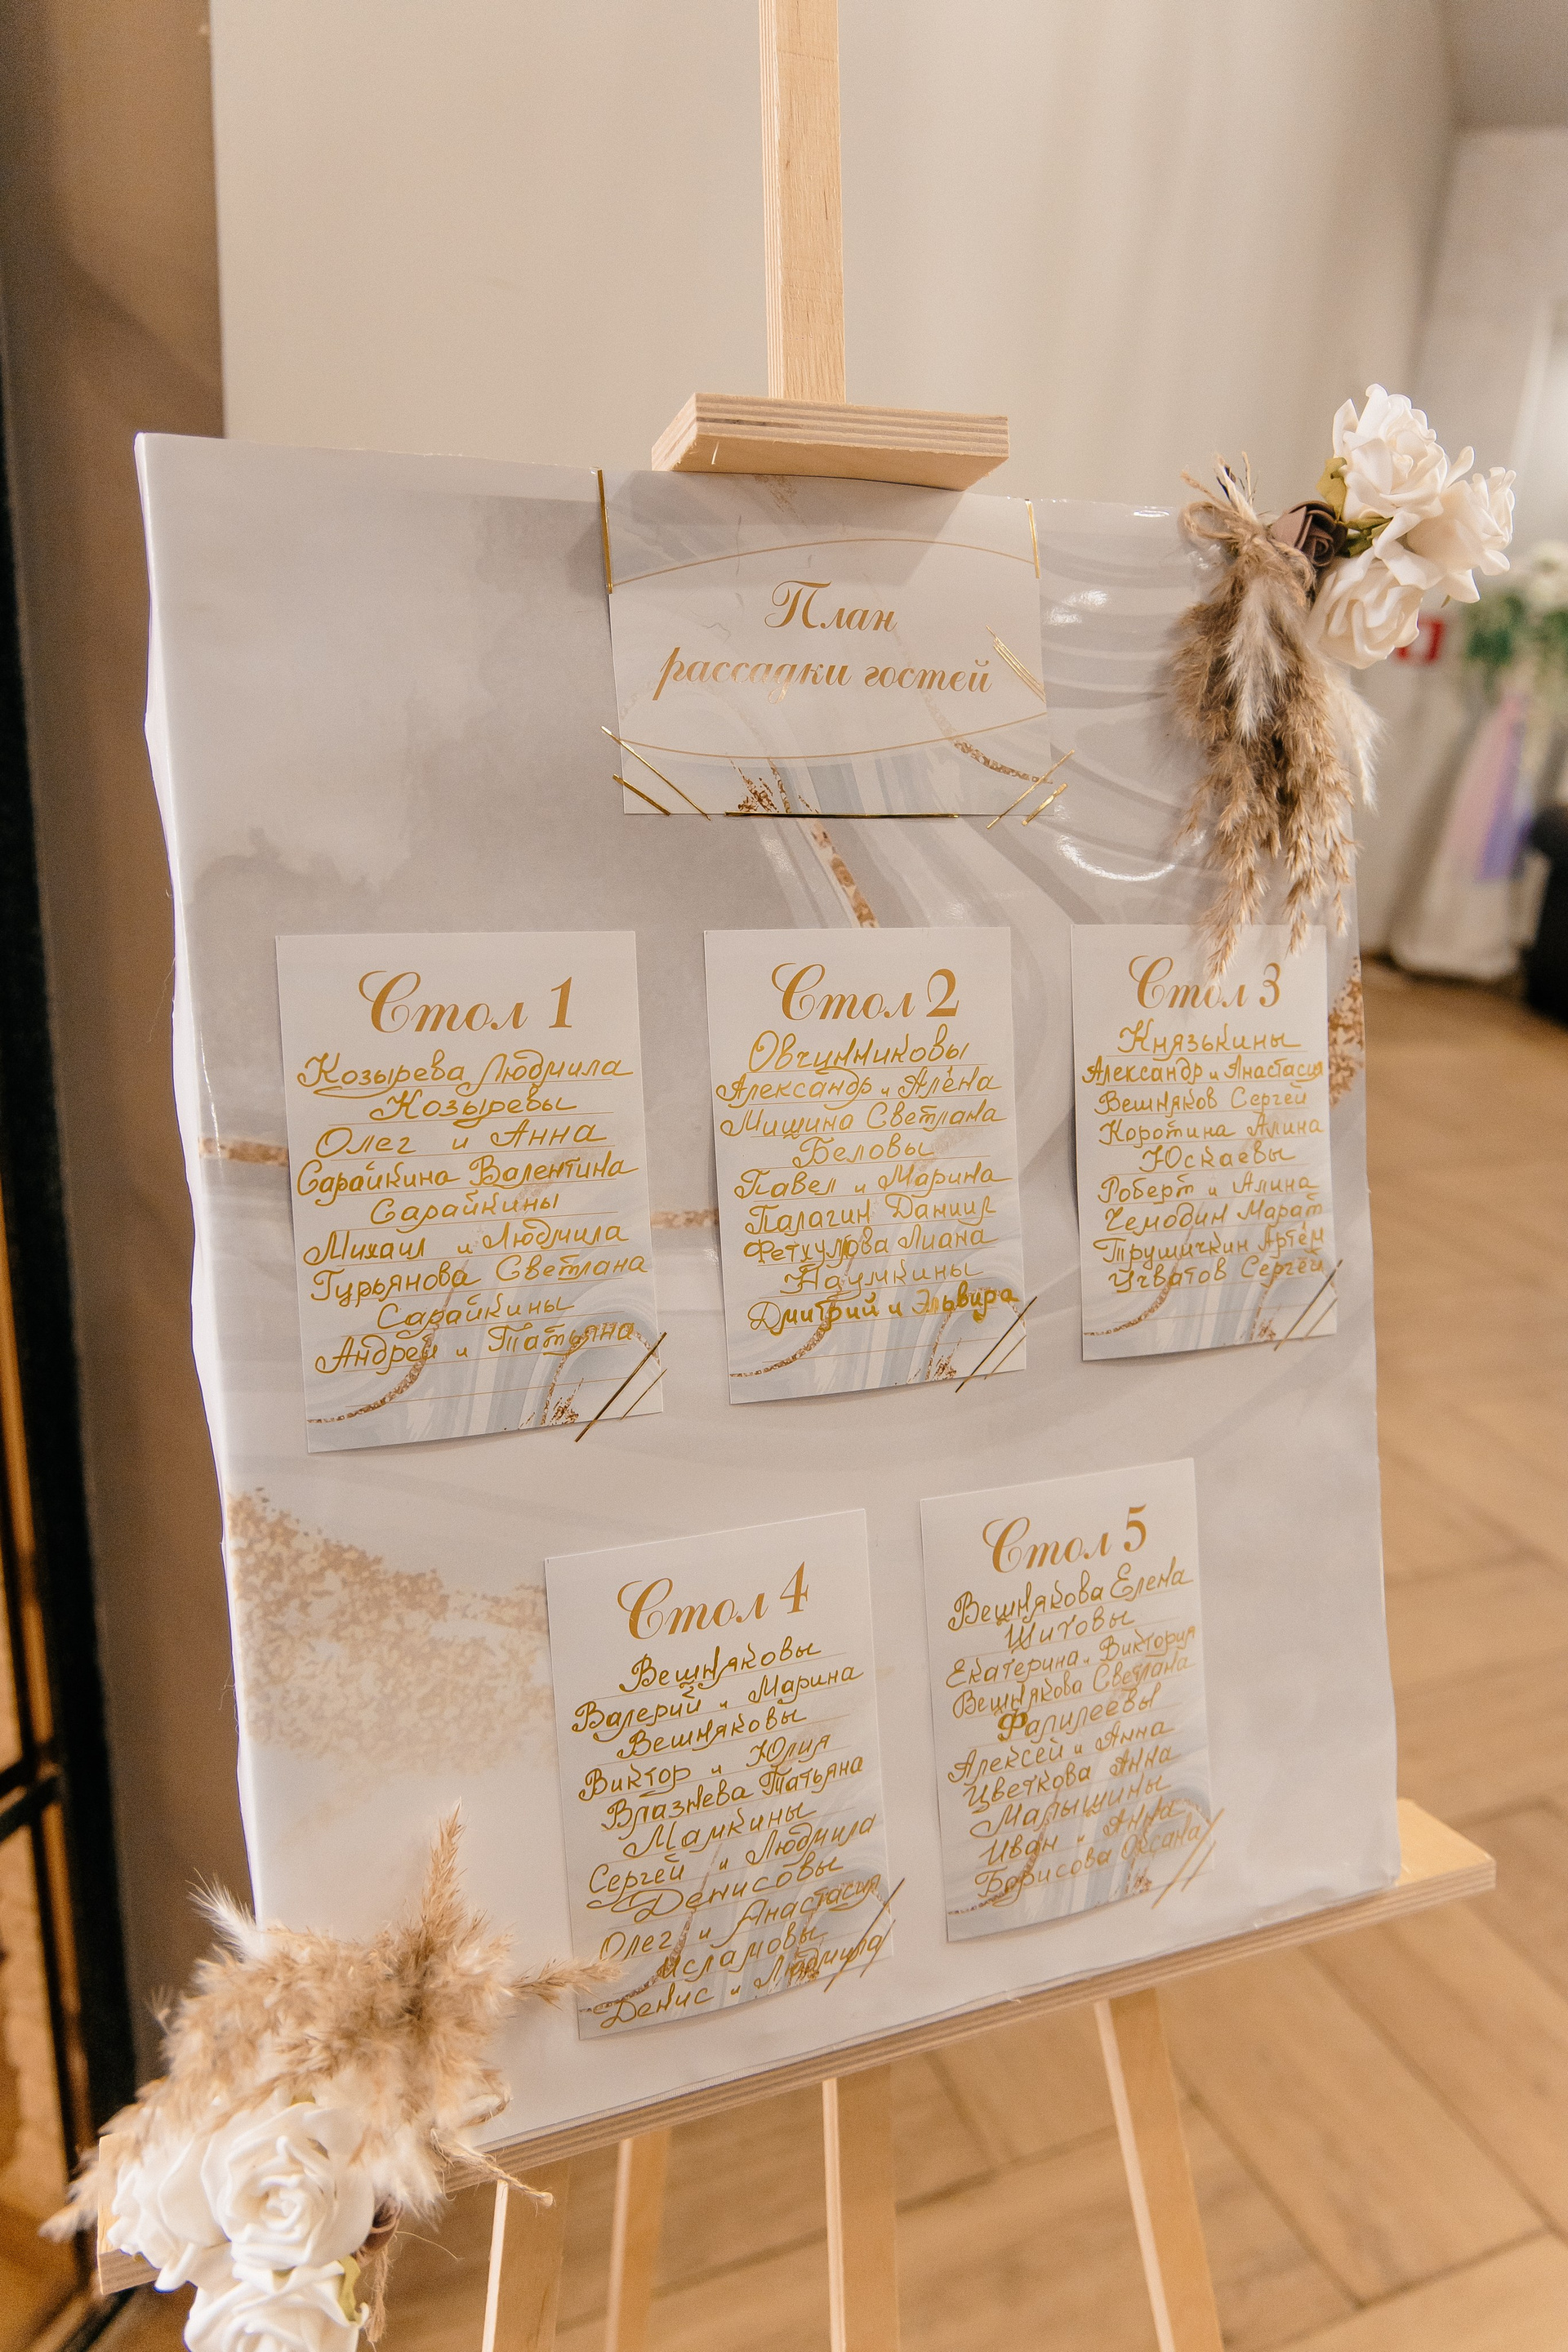 План
рассадки гостей
Стол 1
Козырева Людмила
Козыревы
Олег и Анна
Сарайкина Валентина
Сарайкины
Михаил и Людмила
Гурьянова Светлана
Сарайкины
Андрей и Татьяна
Стол 2
Овчинниковы
Александр и Алёна
Мишина Светлана
Беловы
Павел и Марина
Палагин Даниил
Фетхулова Лиана
Наумкины
Дмитрий и Эльвира
Стол 3
Князькины
Александр и Анастасия
Вешняков Сергей
Коротина Алина
Юскаевы
Роберт и Алина
Чемодин Марат
Трушичкин Артём
Учватов Сергей
Стол 4
Вешняковы
Валерий и Марина
Вешняковы
Виктор и Юлия
Влазнева Татьяна
Мамкины
Сергей и Людмила
Денисовы
Олег и Анастасия
Исламовы
Денис и Людмила
Стол 5
Вешнякова Елена
Шитовы
Екатерина и Виктория
Вешнякова Светлана
Фалилеевы
Алексей и Анна
Цветкова Анна
Малышины
Иван и Анна
Борисова Оксана